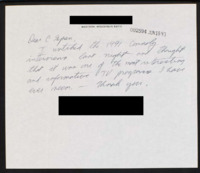 Dear C-Span,
I watched the 1991 Connolly
interview last night and thought
that it was one of the most interesting
and informative TV programs I have
ever seen — Thank you.